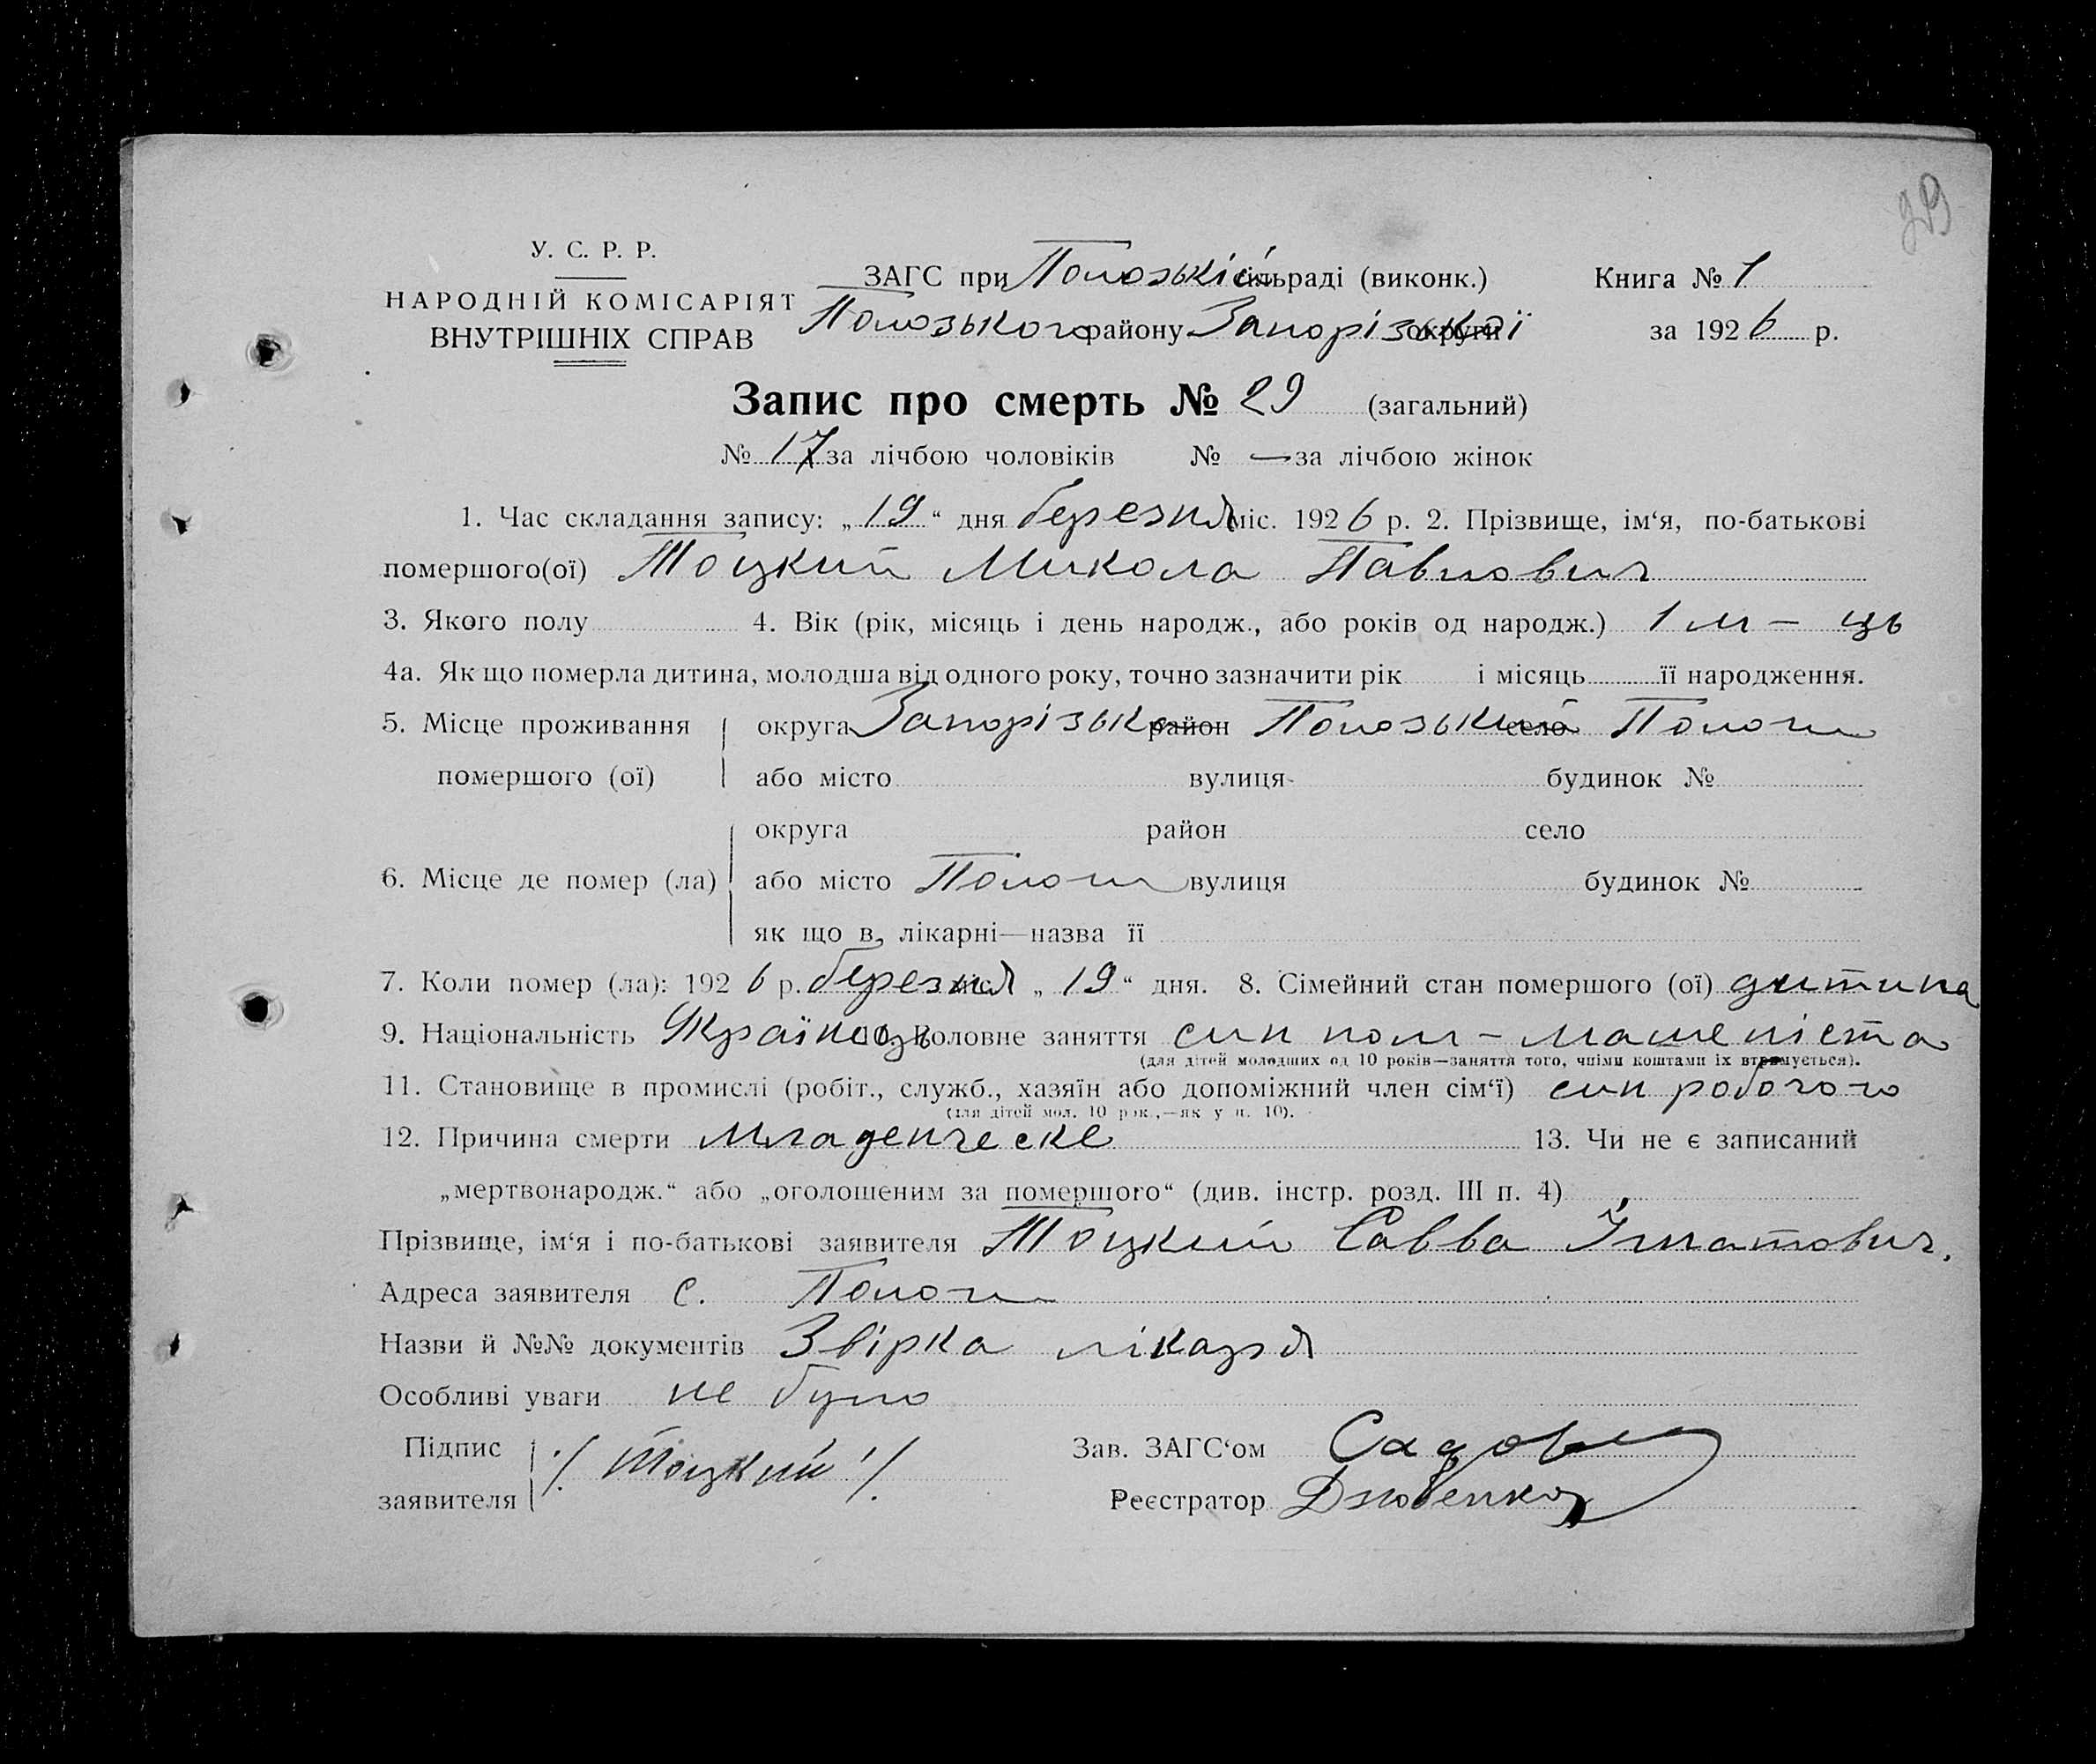 39
У. С. Р. Р.
НАРОДНІЙ КОМІСАРІЯТ
ВНУТРІШНІХ СПРАВ
ЗАГС при Пологській сільраді (виконк.)
Пологзького району Запорізської округи
Книга № 1
за 1926 р.
Запис про смерть № 29 (загальний)
№ 17 за лічбою чоловіків № — за лічбою жінок
1. Час складання запису: „19“ дня березня міс. 1926 р. 2. Прізвище, ім‘я, по-батькові
помершого(ої) Тоцкий Микола Павлович
3. Якого полу 4. Вік (рік, місяць і день народж., або років од народж.) 1 м – ць
4а. Як що померла дитина, молодша від одного року, точно зазначити рік і місяць її народження.
5. Місце проживання округа Запорізька район Полозький село Пологи
помершого (ої) або місто вулиця будинок №
округа район село
6. Місце де помер (ла) або місто Пологи вулиця будинок №
як що в, лікарні—назва її
7. Коли помер (ла): 1926 р. березня „19“ дня. 8. Сімейний стан помершого (ої) дитина
9. Національність Українець 10. Головне заняття син пом – машеніста
(для дітей молодших од 10 років—заняття того, чиїми коштами їх втримується).
11. Становище в промислі (робіт., служб., хазяїн або допоміжний член сім‘ї) син робочого
(для дітей мол. 10 рок.,—як у п. 10).
12. Причина смерти Младенческе 13. Чи не є записаний
„мертвонародж.“ або „оголошеним за помершого“ (див. інстр. розд. III п. 4)
Прізвище, ім‘я і по-батькові заявителя Тоцкий Савва Ігнатович.
Адреса заявителя с. Пологи
Назви й №№ документів Звірка лікаря
Особливі уваги не було
Підпис
заявителя ./. Тоцкий ./.
Зав. ЗАГС‘ом
Реєстратор